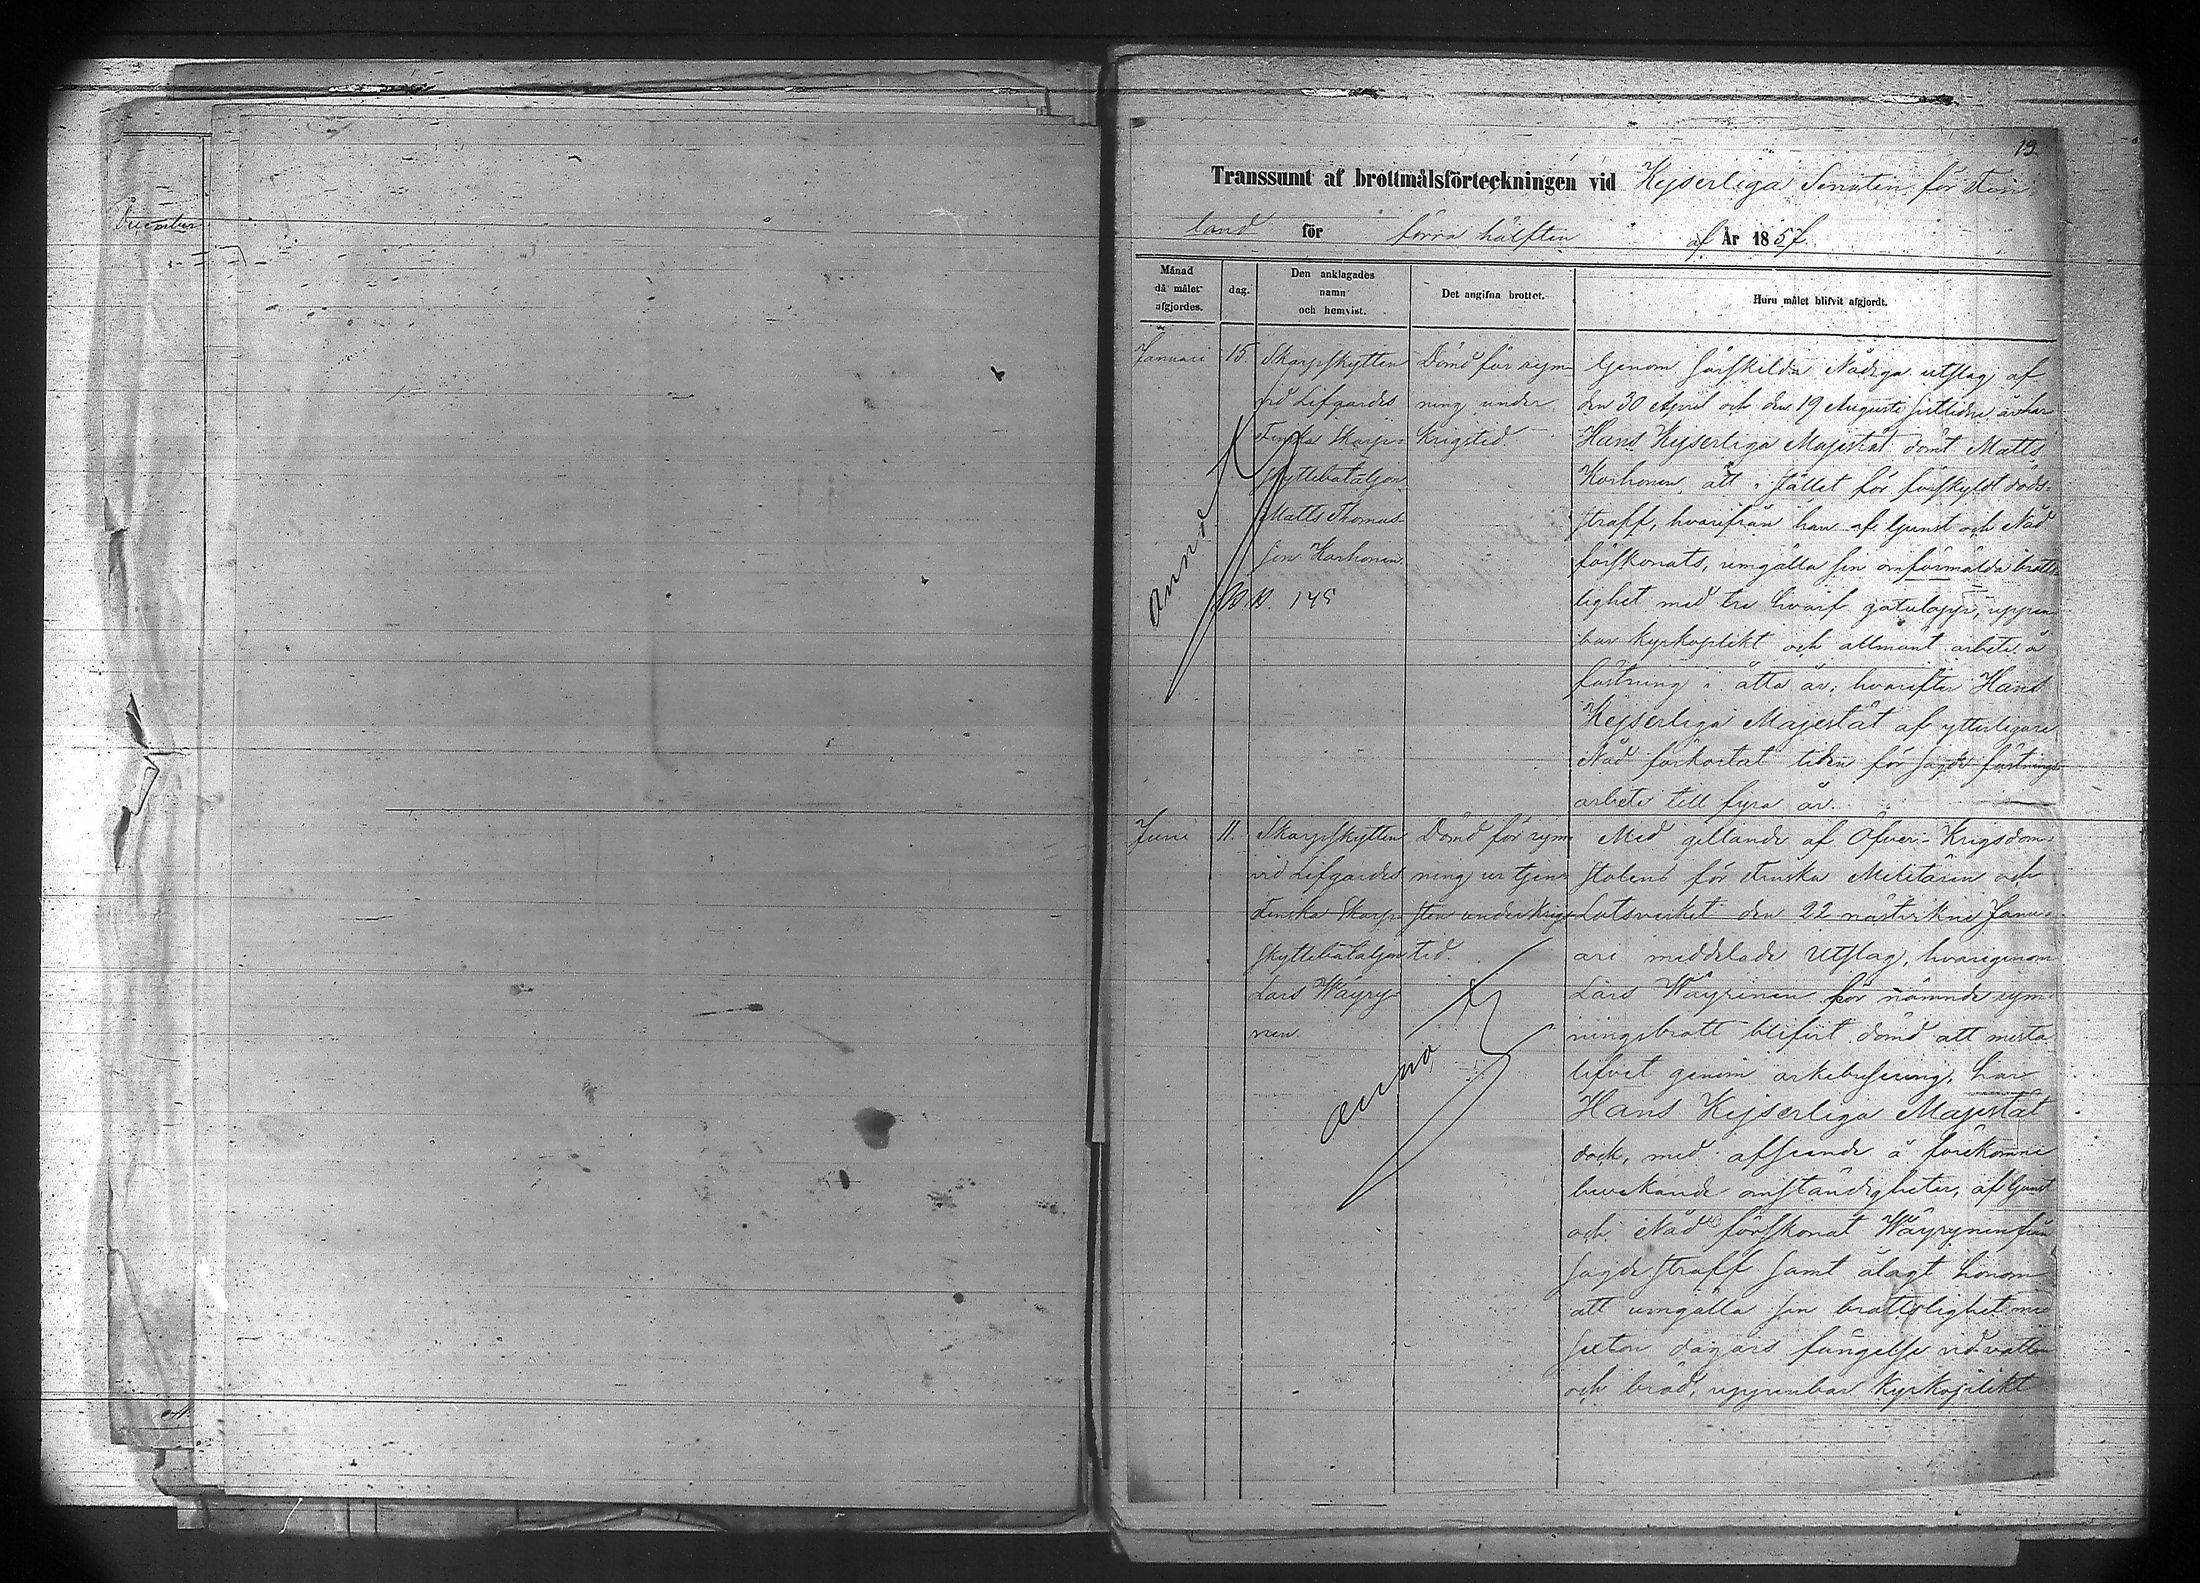 December
19.
Transsumt af brottmålsförteckningen vid Kejserliga Senaten för Fin-
land för förra hälften af År 1857.
Månad
då målet
afgjordes.
dag.
Den anklagades
namn
och hemvist.
Det angifna brottet.
Huru målet blifvit afgjordt.
Januari
15.
Skarpskytten
vid Lifgardes
Finska Skarp-
skyttebataljon
Matts Thomas-
son Korhonen.
145
Dömd för rym-
ning under
krigstid.
Genom särskilda Nådiga utslag af
den 30 April och den 19 Augusti har
Hans Kejserliga Majestät dömt Matts
Korhonen, att i stället för förskyldt döds-
straff, hvarifrån han af Gunst och Nåd
förskonats, umgälla sin omförmälda brotts-
lighet med tre hvarf gatulopp, uppen-
bar kyrkoplikt och allmänt arbete å
fästning i åtta år; hvarefter Hans
Kejserliga Majestät af ytterligare
Nåd förkortat tiden för sagde fästnings-
arbete till fyra år.
Juni
11.
Skarpskytten
vid Lifgardes
Finska Skarp-
skyttebataljon
Lars Wäyry-
nen.
Dömd för rym-
ning ur tjen-
sten under krigs-
tid.
Med gillande af Öfver-Krigsdom-
stolens för Finska Militären och
Lotsverket den 22 nästvikne Janu-
ari meddelade Utslag, hvarigenom
Lars Wäyrinen för nämnde rym-
ningsbrott blifvit dömd att mista
lifvet genom arkebusering, har
Hans Kejserliga Majestät
dock, med afseende å förekomne
bevekande omständigheter, af Gunst
och Nåd förskonat Wäyrynen från
sagde straff samt ålagt honom
att umgälla sin brottslighet med
sexton dagars fängelse vid vatten
och bröd, uppenbar kyrkoplikt